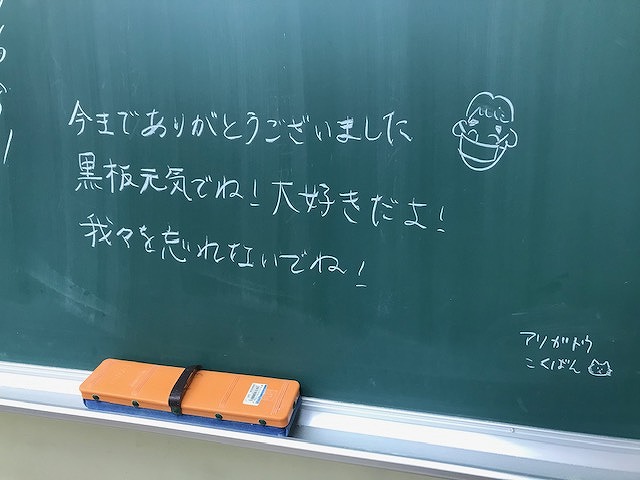 今までありがとうございました
黒板元気でね！大好きだよ！
我々を忘れないでね！
アリガトウ
こくばん